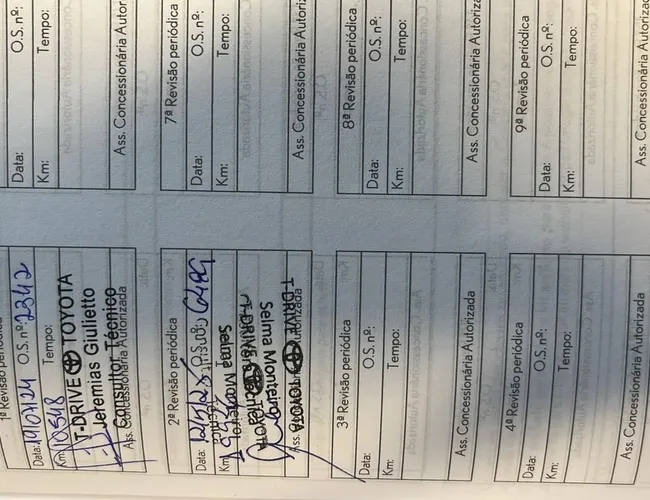 1ª Revisão periódica
Data: 19/07/24 O.S. nº: 2342
Km: 10548 Tempo:
T-DRIVE TOYOTA
Jeremias Giulietto
Consultor Técnico
Ass. Concessionária Autorizada
2ª Revisão periódica
Data: O.S. nº: 6489
Km:
Selma Monteiro
T-DRIVE TOYOTA
Selma Monteiro
T-DRIVE TOYOTA
Ass.
3ª Revisão periódica
Data: O.S. nº:
Km: Tempo:
Ass. Concessionária Autorizada
4ª Revisão periódica
Data: O.S. nº:
Km: Tempo:
Ass. Concessionária Autorizada
Data: O.S. nº:
Km: Tempo:
Ass. Concessionária Autor
7ª Revisão periódica
Data: O.S. nº:
Km: Tempo:
Ass. Concessionária Autoriz
8ª Revisão periódica
Data: O.S. nº:
Km: Tempo:
Ass. Concessionária Autoriz
9ª Revisão periódica
Data: O.S. nº:
Km: Tempo:
Ass. Concessionária Autoriza